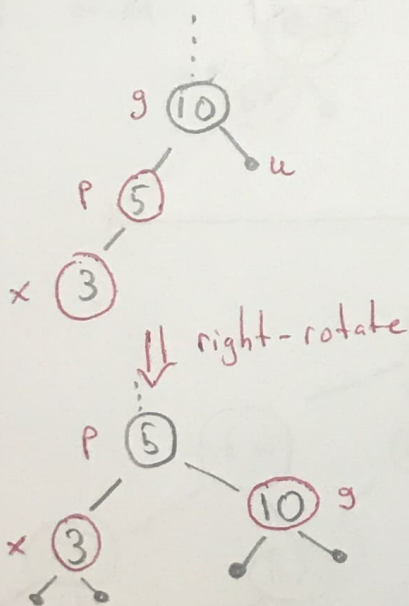 g 10
u
p 5
x 3
right-rotate
p 5
10 g
x 3